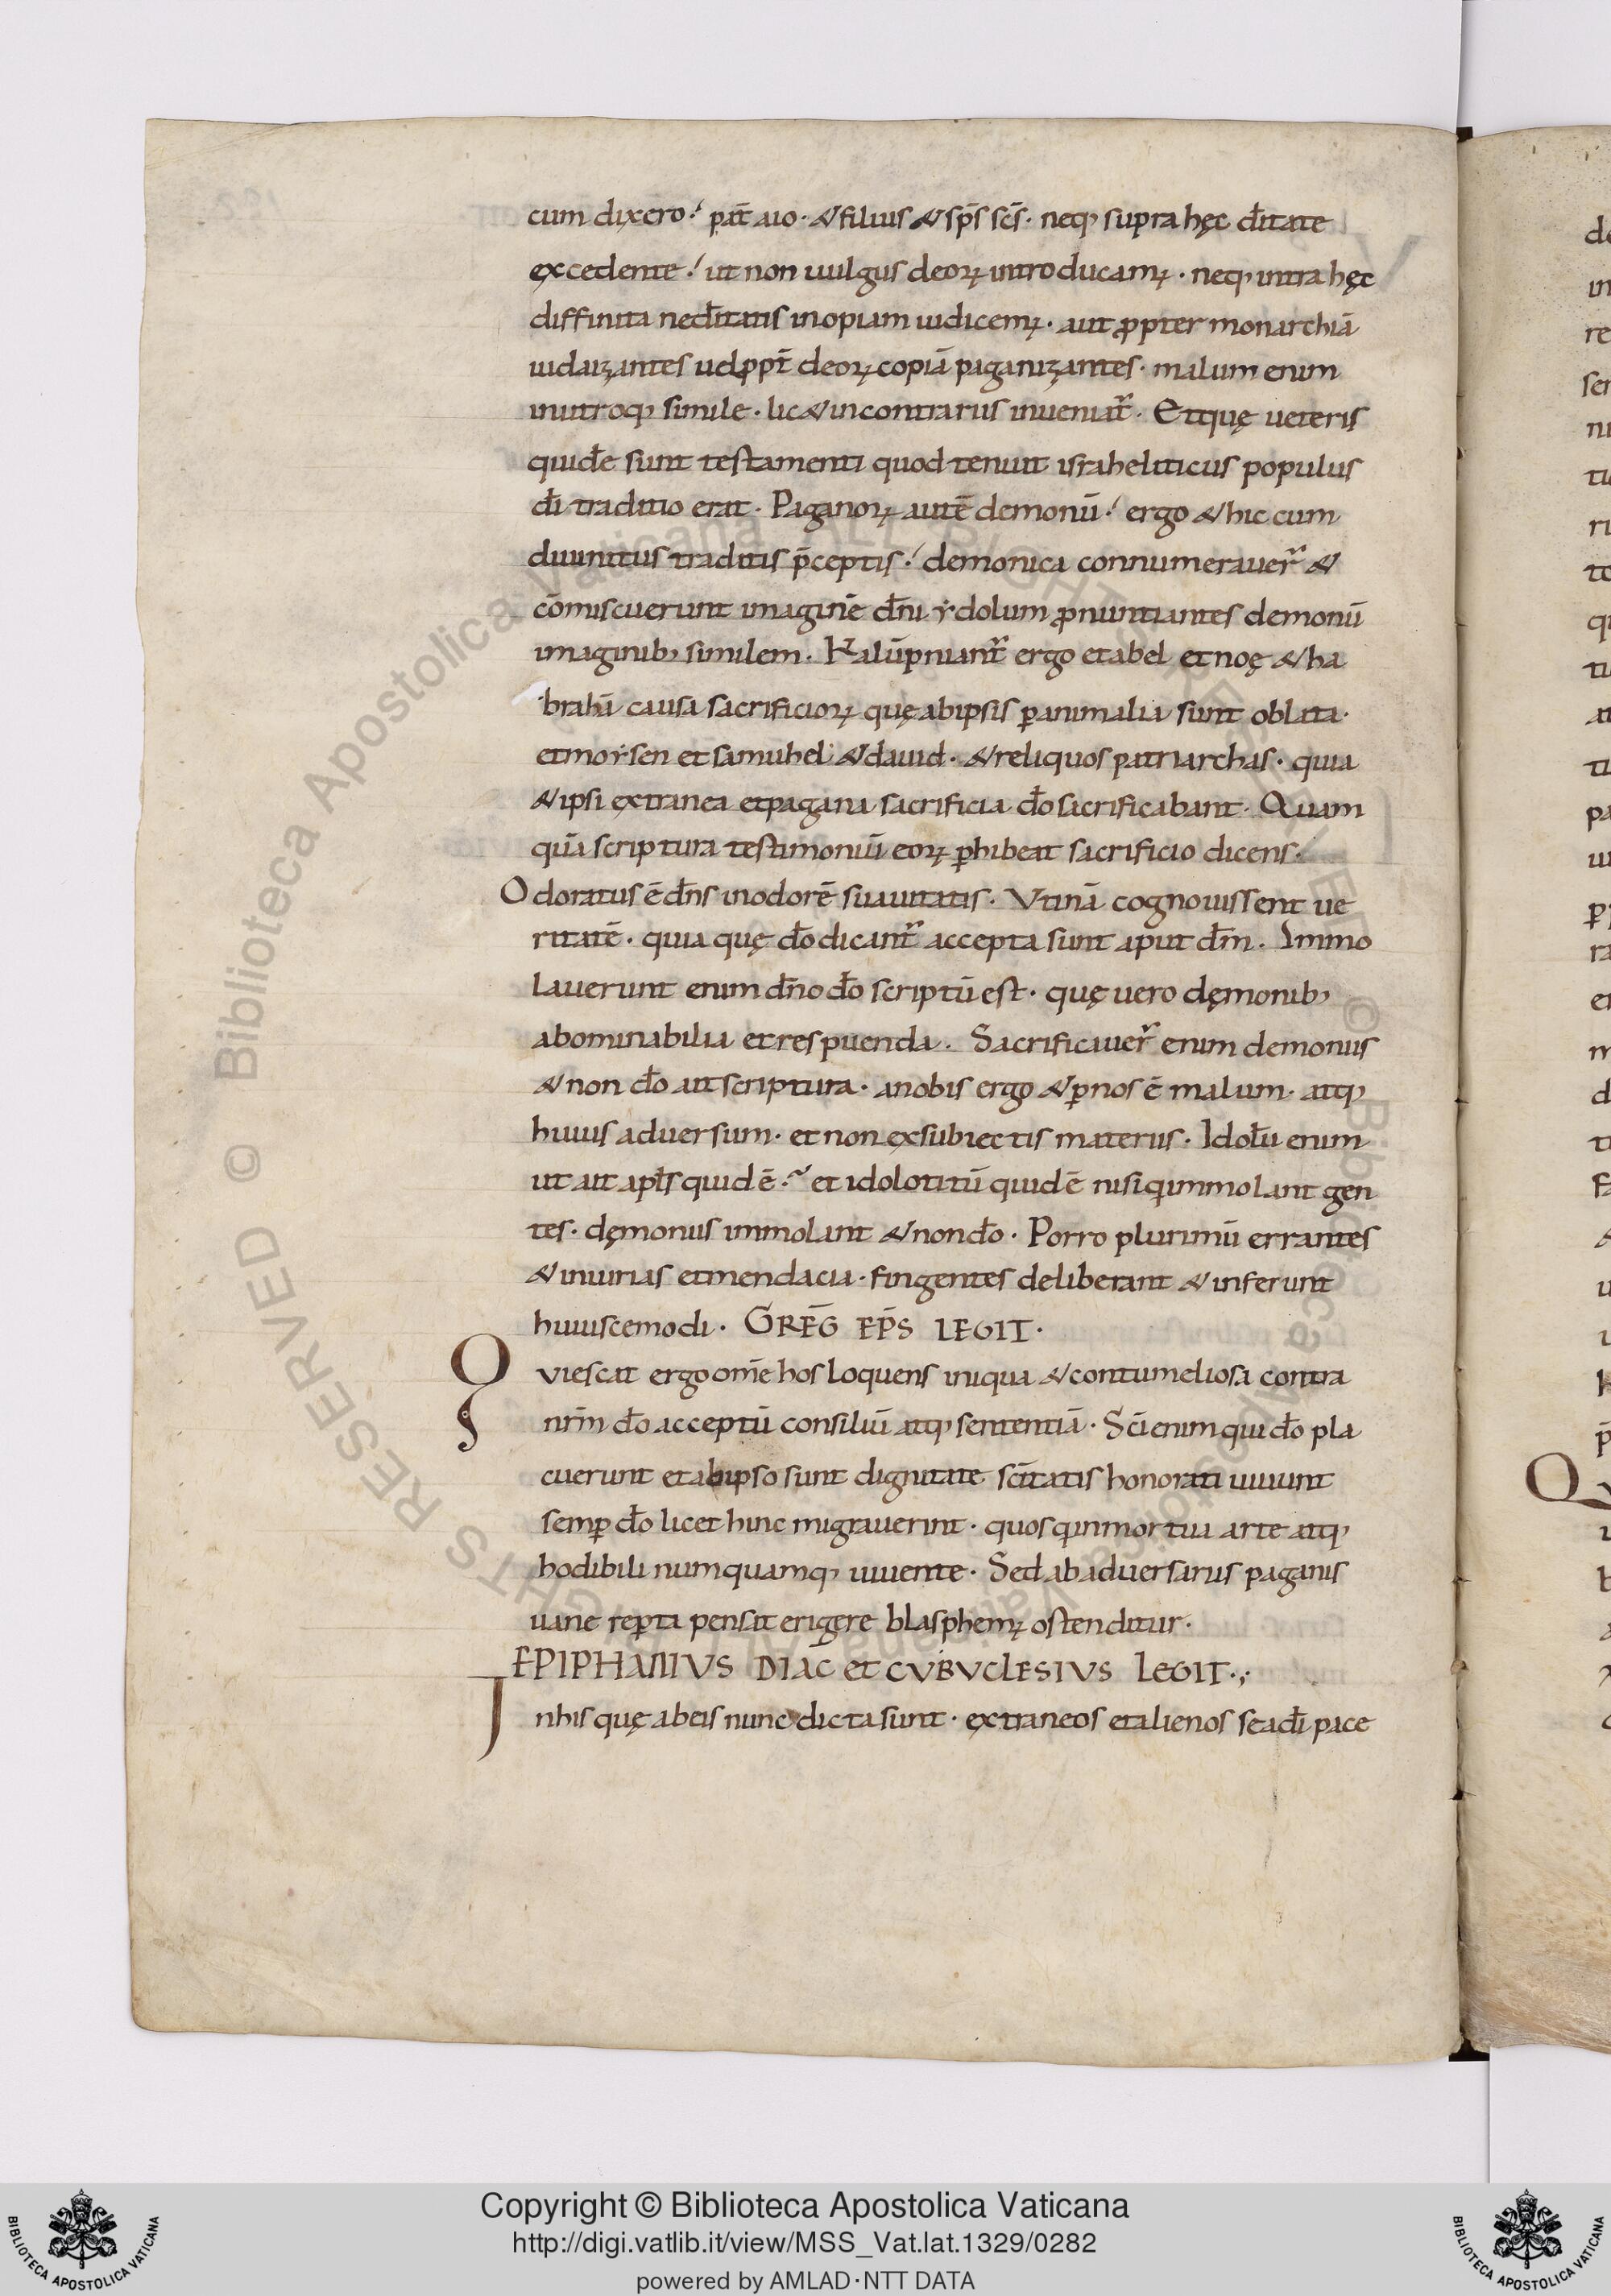 cum dixero. pat̄ aio. & filius & sp̄s sc̄s. neq; supra hęc d̄itate
excedente. ut non uulgus deoꝝ introducamꝰ. neq; intra hęc
diffinita ne d̄itatis inopiam iudicemꝰ. aut ꝓpter monarchiā
iudaizantes uel ꝓpt̄ deoꝝ copiā paganizantes. malum enim
in utroq; simile. lic& in contrariis inueniat̄. Et quę ueteris
quidē sunt testamenti quod tenuit israheliticus populus
d̄i traditio erat. Paganoꝝ autē demonū. ergo & hic cum
diuinitus traditis p̄ceptis. demonica connumerauer̄ &
cōmiscuerunt imaginē d̄ni ẏdolum ꝓnuntiantes demonū
imaginib; similem. Kalūpniant̄ ergo et abel et noę & ha
brahā causa sacrificioꝝ quę ab ipsis ꝑ animalia sunt oblata.
et moẏsen et samuhel & dauid. & reliquos patriarchas. quia
& ipsi extranea et pagana sacrificia d̄o sacrificabant. Quam
quā scriptura testimoniū eoꝝ ꝑhibeat sacrificio dicens.
Odoratus ē d̄ns in odorē suauitatis. Vtinā cognouissent ue
ritatē. quia quę d̄o dicant̄ accepta sunt aput d̄m. Immo
lauerunt enim d̄no d̄o scriptū est. quę uero dęmonib;
abominabilia et respuenda. Sacrificauer̄ enim demoniis
& non d̄o ait scriptura. a nobis ergo & ꝑ nos ē malum. atq;
huius aduersum. et non ex subiectis materiis. Idolū enim
ut ait apl̄s quid ē. et idolotitū quid ē nisi q immolant gen
tes. dęmoniis immolant & non d̄o. Porro plurimū errantes
& iniurias et mendacia. fingentes deliberant & inferunt
huiuscemodi. GREḠ EP̄S LEGIT.
Quiescat ergo om̄e hos loquens iniqua & contumeliosa contra
nr̄m d̄o acceptū consiliū atq; sententiā. Sc̄i enim qui d̄o pla
cuerunt et ab ipso sunt dignitate sc̄itatis honorati uiuunt
semꝑ d̄o licet hinc migrauerint. quos q in mortua arte atq;
hodibili numquamq; uiuente. Sed ab aduersariis paganis
uane reꝑta pensat erigere blasphemꝰ ostenditur.
EPIPHANIVS DIAC̄ et CVBVCLESIVS LEGIT.
In his quę ab eis nunc dicta sunt. extraneos et alienos se a d̄i pace
Copyright © Biblioteca Apostolica Vaticana
http://digi.vatlib.it/view/MSS_Vat.lat.1329/0282
powered by AMLAD·NTT DATA
BIBLIOTECA APOSTOLICA VATICANA
BIBLIOTECA APOSTOLICA VATICANA